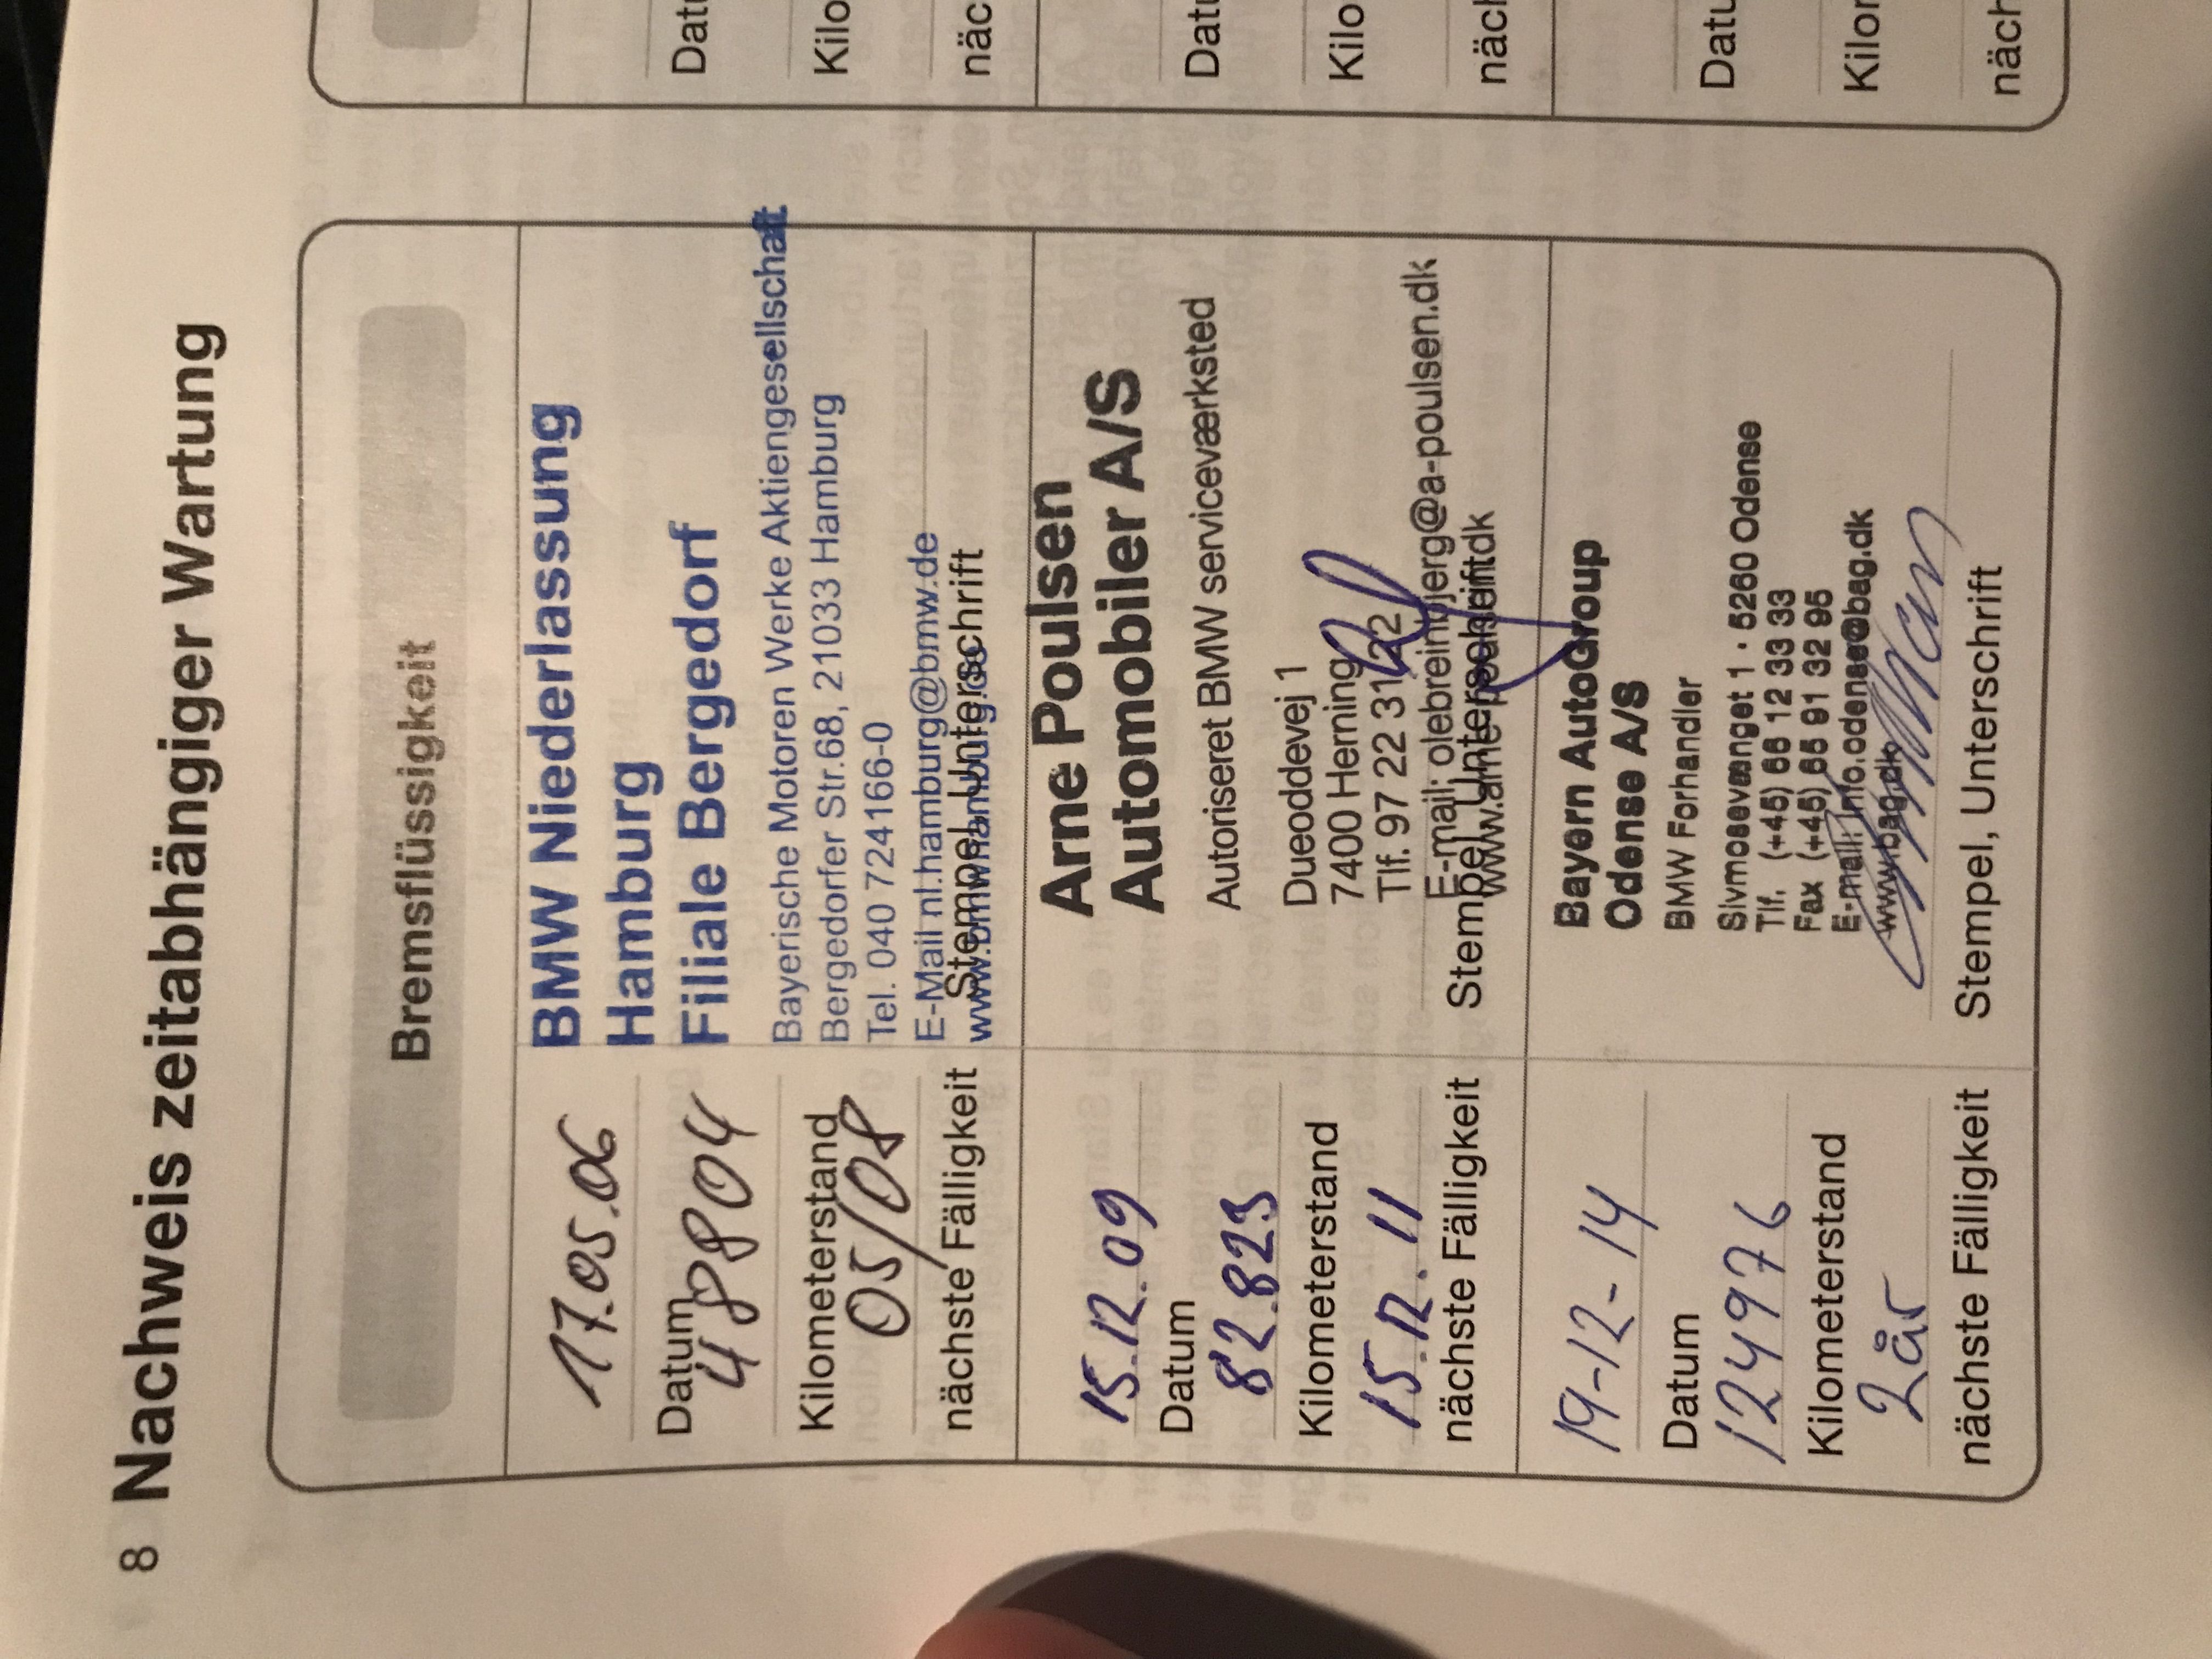 8 Nachweis zeitabhängiger Wartung
Bremsflüssigkeit
17.05.06
Datum
48804
Kilometerstand
05/08
nächste Fälligkeit
BMW Niederlassung
Hamburg
Filiale Bergedorf
Bayerische Motoren Werke Aktiengesellschaft
Bergedorfer Str.68, 21033 Hamburg
Tel. 040 724166-0
E-Mail nl.hamburg@bmw.de
www.bmwhamburg.de
Stempel, Unterschrift
15.12.09
Datum
82.823
Kilometerstand
15.12.11
nächste Fälligkeit
Arne Poulsen
Automobiler A/S
Autoriseret BMW serviceværksted
Dueoddevej 1
7400 Herning
Tlf. 97 22 31 22
E-mail: olebreinbjerg@a-poulsen.dk
Stempel, Unterschrift
19-12-14
Datum
124976
Kilometerstand
2 år
nächste Fälligkeit
Bayern AutoGroup
Odense A/S
BMW Forhandler
Sivmosevænget 1 · 5260 Odense
Tlf. (+45) 66 12 33 33
Fax (+45) 65 91 32 95
E-mail: info.odense@bag.dk
www.bag.dk
Stempel, Unterschrift
Datu
Kilo
näc
Datu
Kilo
näch
Datu
Kilor
näch